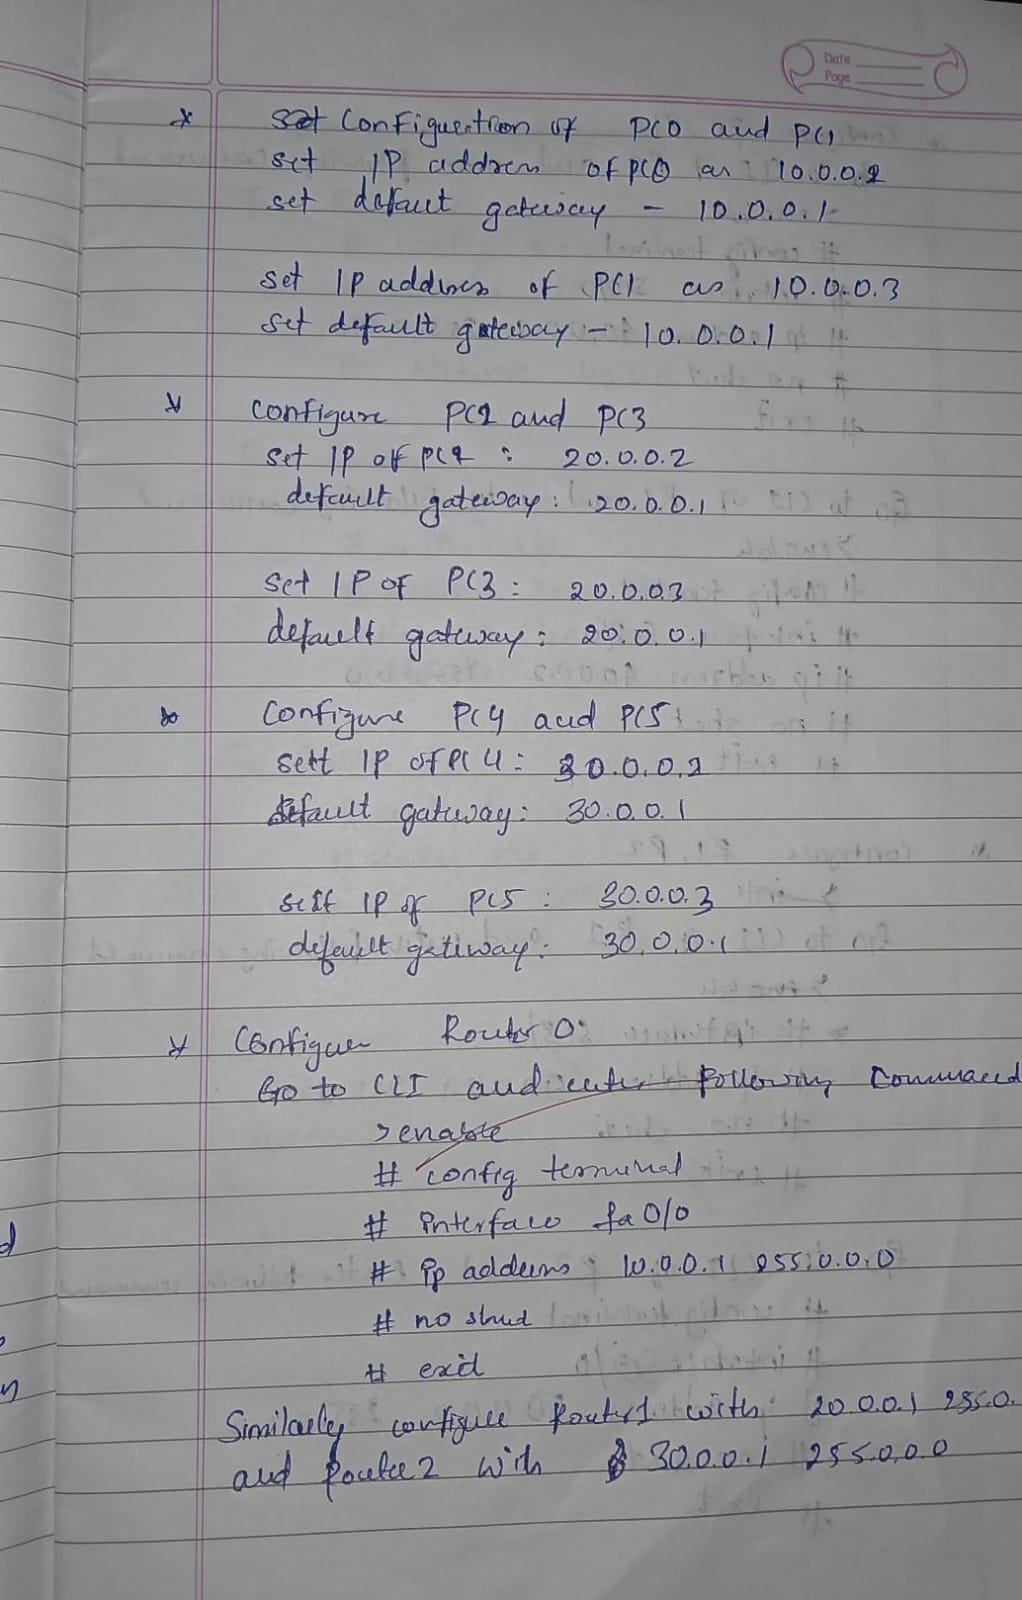 Date
Page
* set Configuration of PC0 and PC1
set IP address of PC0 as 10.0.0.2
set default gateway - 10.0.0.1
set IP address of PC1 as 10.0.0.3
set default gateway - 10.0.0.1
* configure PC2 and PC3
set IP of PC2 : 20.0.0.2
default gateway : 20.0.0.1
set IP of PC3 : 20.0.0.3
default gateway : 20.0.0.1
* Configure PC4 and PC5
sett IP of PC4 : 30.0.0.2
default gateway : 30.0.0.1
sett IP of PC5 : 30.0.0.3
default gateway : 30.0.0.1
* Configure Router 0:
Go to CLI and enter following Command
>enable
# config terminal
# interface fa0/0
# ip address 10.0.0.1 255.0.0.0
# no shud
# exit
Similarly configure Router1 with 20.0.0.1 255.0.
and Router2 with 30.0.0.1 255.0.0.0